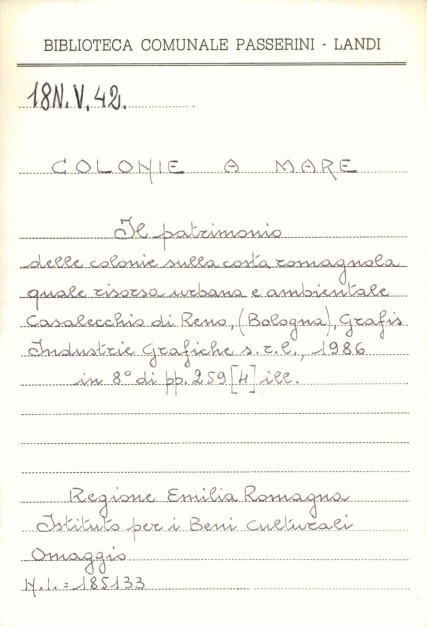 BIBLIOTECA COMUNALE PASSERINI - LANDI
18N.V.42.
COLONIE A MARE
Il patrimonio
delle colonie sulla costa romagnola
quale risorsa urbana e ambientale
Casalecchio di Reno, (Bologna), Grafis
Industrie Grafiche s.r.l., 1986
in 8° di pp. 259 [4] ill.
Regione Emilia Romagna
Istituto per i Beni Culturali
Omaggio
N.I. = 185133